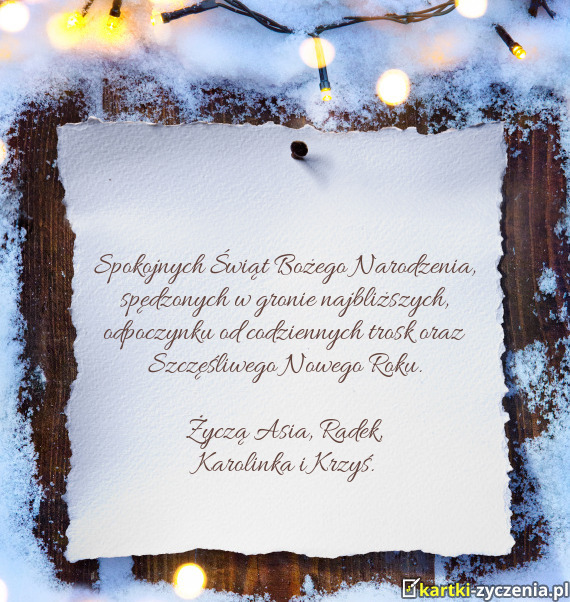 Spokojnych Świąt Bożego Narodzenia,
spędzonych w gronie najbliższych,
odpoczynku od codziennych trosk oraz
Szczęśliwego Nowego Roku.
Życzą Asia, Radek,
Karolinka i Krzyś.
kartki-zyczenia.pl